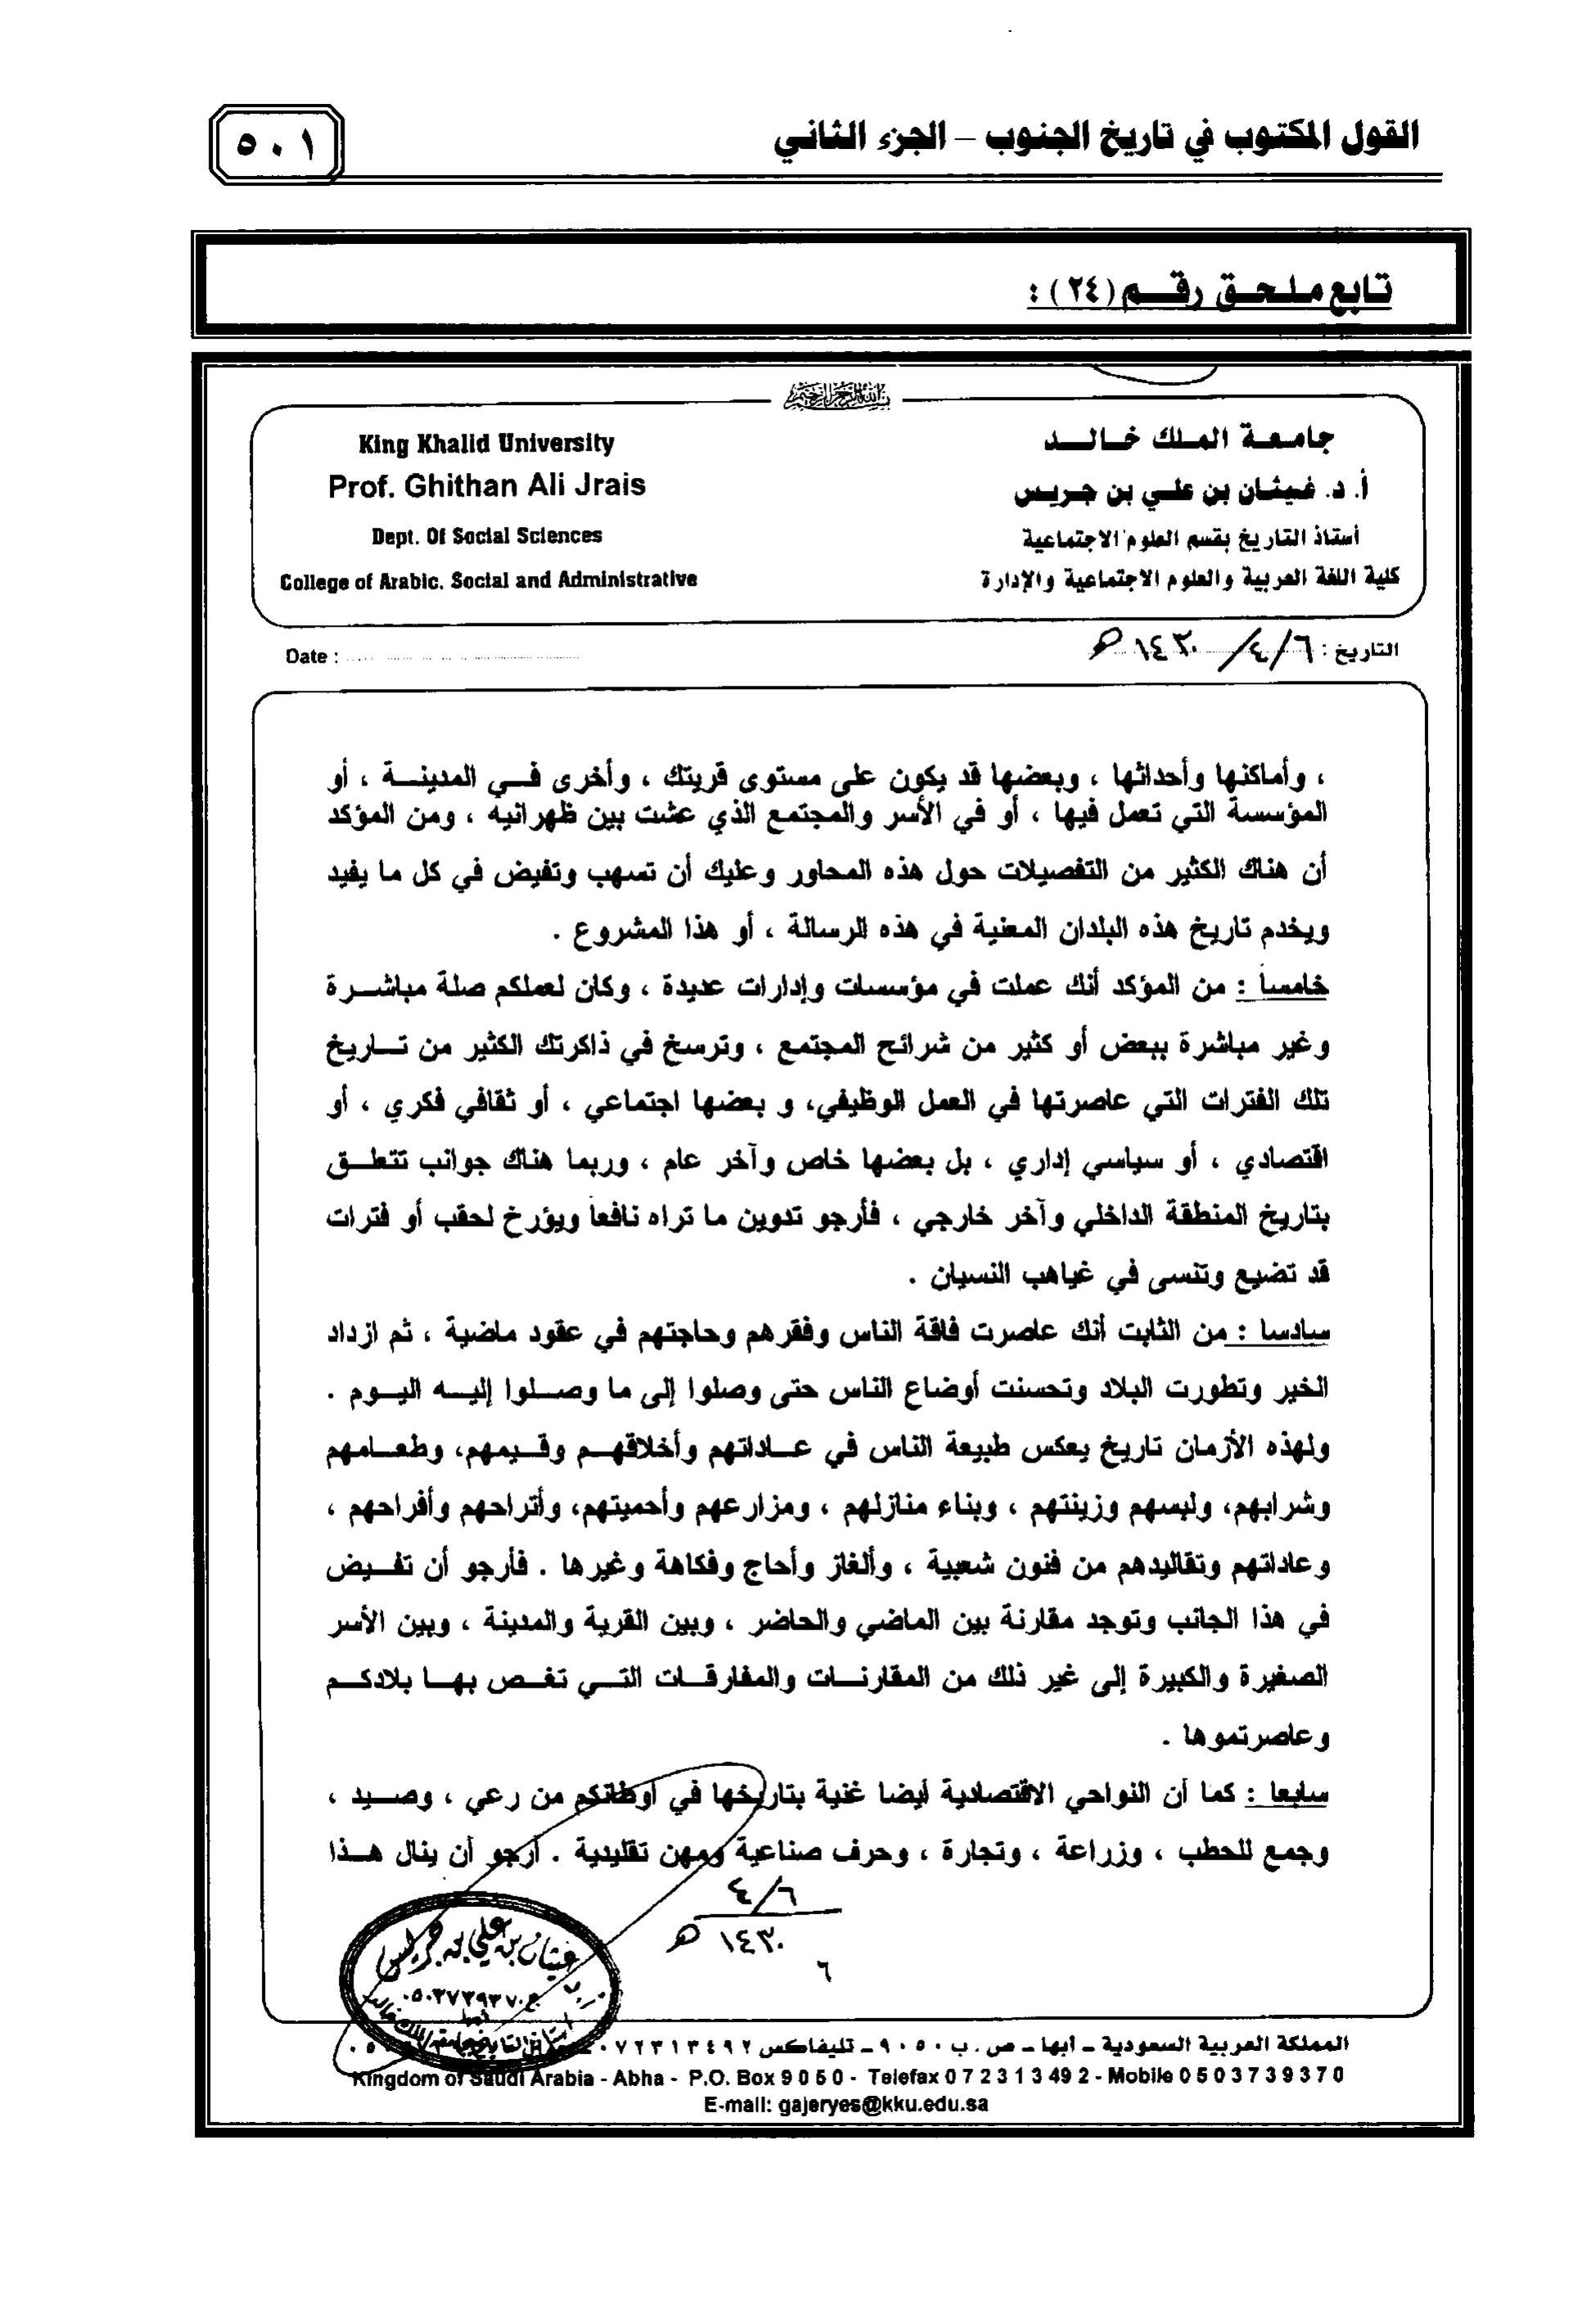 القول المكتوب في تاريخ الجنوب – الجزء الثاني
٥٠١
تابع ملحق رقم (٢٤) :
بسم الله الرحمن الرحيم
جامعة الملك خالد
أ. د. غيثان بن علي بن جريس
أستاذ التاريخ بقسم العلوم الاجتماعية
كلية اللغة العربية والعلوم الاجتماعية والإدارة
King Khalid University
Prof. Ghithan Ali Jrais
Dept. Of Social Sciences
College of Arabic. Social and Administrative
التاريخ : ٦/٤/١٤٣٠هـ
Date :
، وأماكنها وأحداثها ، وبعضها قد يكون على مستوى قريتك ، وأخرى في المدينة ، أو
المؤسسة التي تعمل فيها ، أو في الأسر والمجتمع الذي عشت بين ظهرانيه ، ومن المؤكد
أن هناك الكثير من التفصيلات حول هذه المحاور وعليك أن تسهب وتفيض في كل ما يفيد
ويخدم تاريخ هذه البلدان المعنية في هذه الرسالة ، أو هذا المشروع .
خامساً : من المؤكد أنك عملت في مؤسسات وإدارات عديدة ، وكان لعملكم صلة مباشرة
وغير مباشرة ببعض أو كثير من شرائح المجتمع ، وترسخ في ذاكرتك الكثير من تاريخ
تلك الفترات التي عاصرتها في العمل الوظيفي، و بعضها اجتماعي ، أو ثقافي فكري ، أو
اقتصادي ، أو سياسي إداري ، بل بعضها خاص وآخر عام ، وربما هناك جوانب تتعلق
بتاريخ المنطقة الداخلي وآخر خارجي ، فأرجو تدوين ما تراه نافعاً ويؤرخ لحقب أو فترات
قد تضيع وتنسى في غياهب النسيان .
سادسا : من الثابت أنك عاصرت فاقة الناس وفقرهم وحاجتهم في عقود ماضية ، ثم ازداد
الخير وتطورت البلاد وتحسنت أوضاع الناس حتى وصلوا إلى ما وصلوا إليه اليوم .
ولهذه الأزمان تاريخ يعكس طبيعة الناس في عاداتهم وأخلاقهم وقيمهم، وطعامهم
وشرابهم، ولبسهم وزينتهم ، وبناء منازلهم ، ومزارعهم وأحميتهم، وأتراحهم وأفراحهم ،
وعاداتهم وتقاليدهم من فنون شعبية ، وألغاز وأحاج وفكاهة وغيرها . فأرجو أن تفيض
في هذا الجانب وتوجد مقارنة بين الماضي والحاضر ، وبين القرية والمدينة ، وبين الأسر
الصغيرة والكبيرة إلى غير ذلك من المقارنات والمفارقات التي تغص بها بلادكم
وعاصرتموها .
سابعا : كما أن النواحي الاقتصادية أيضا غنية بتاريخها في أوطانكم من رعي ، وصيد ،
وجمع للحطب ، وزراعة ، وتجارة ، وحرف صناعية ومهن تقليدية . أرجو أن ينال هذا
٦/٤
١٤٣٠هـ
٦
غيثان بن علي بن جريس
ج ٠٥٠٣٧٣٩٣٧٠
المملكة العربية السعودية – أبها – ص . ب ٩٠٥٠ – تليفاكس ٠٧٢٣١٣٤٩٢
Kingdom of Saudi Arabia - Abha - P.O. Box 9 0 5 0 - Telefax 0 7 2 3 1 3 49 2 - Mobile 0 5 0 3 7 3 9 3 7 0
E-mail: gajeryes@kku.edu.sa